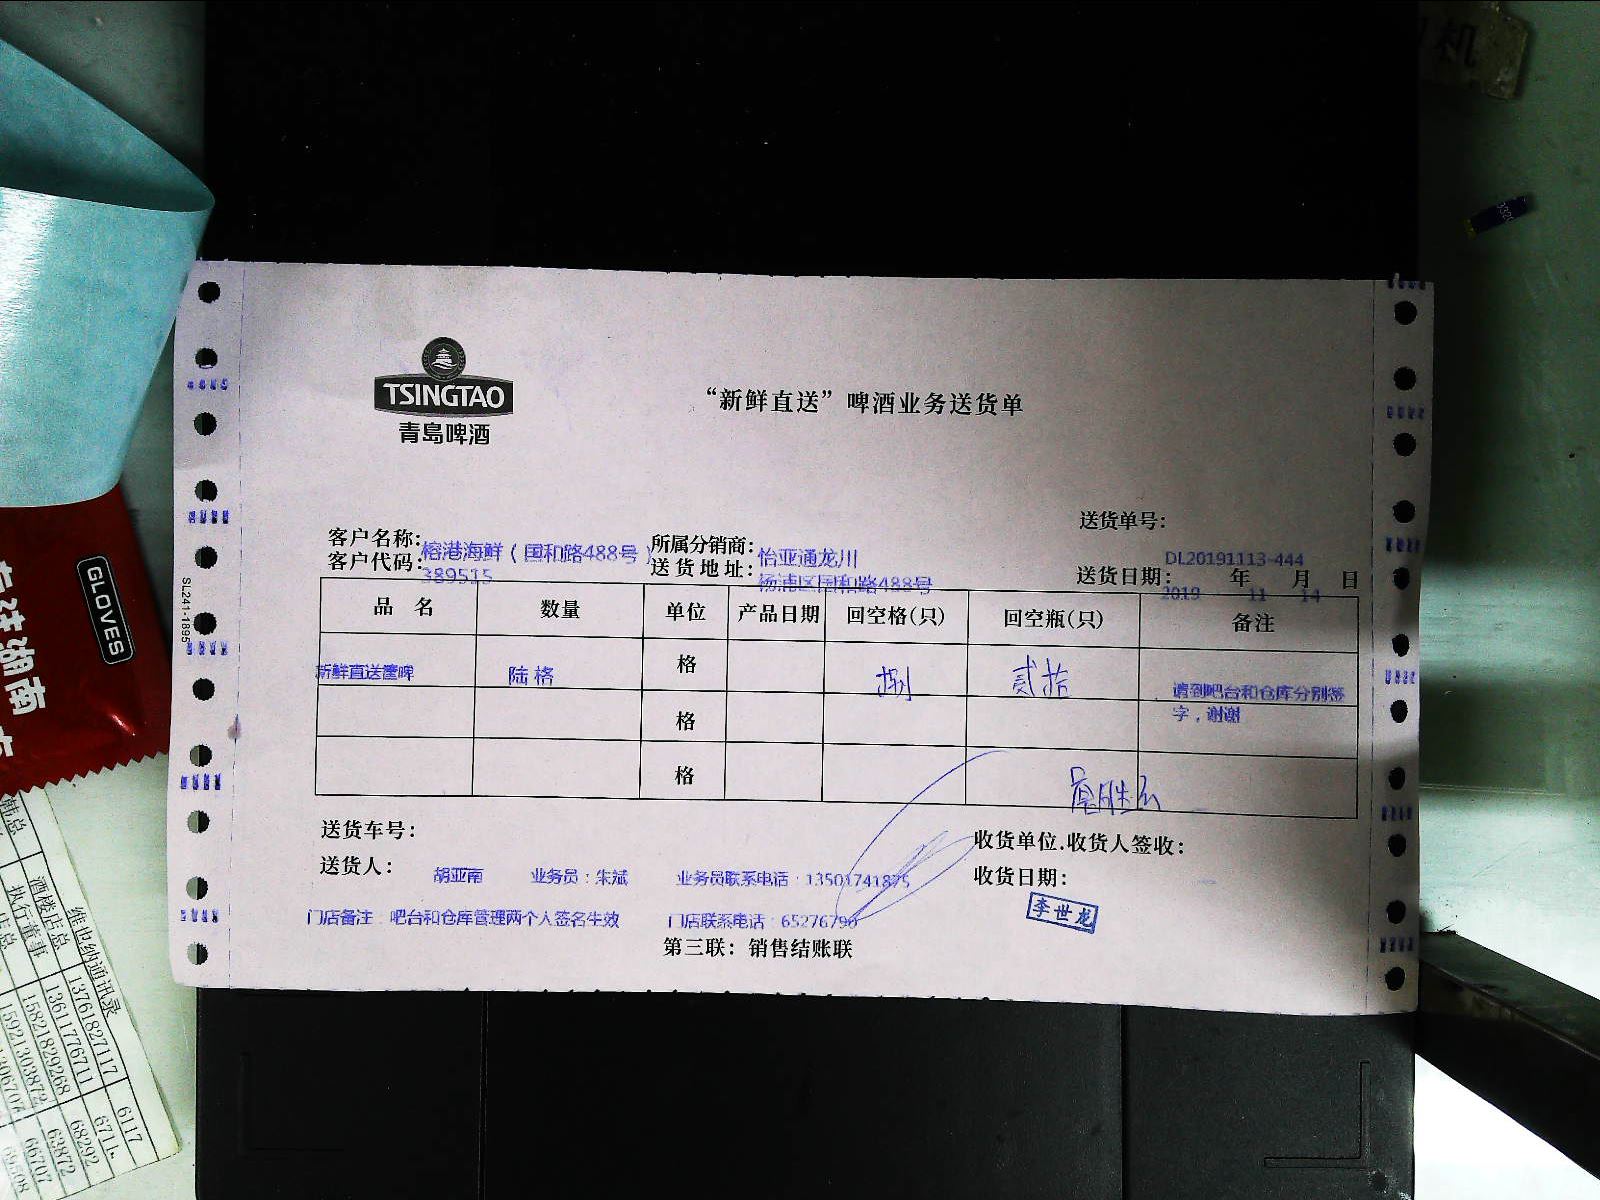 机
TSINGTAO
青島啤酒
“新鲜直送”啤酒业务送货单
送货单号：
DL20191113-444
客户名称：榕港海鲜（国和路488号）
所属分销商：怡亚通龙川
客户代码：389515
送货地址：杨浦区国和路488号
送货日期：2019年11月14日
品 名 数量 单位 产品日期 回空格(只) 回空瓶(只) 备注
新鲜直送董啤 陆格 格 捌 贰拾 请到吧台和仓库分别签
字，谢谢
格
格
送货车号：
收货单位.收货人签收：
送货人：胡亚南 业务员：朱斌 业务员联系电话：13501741875
收货日期：
李世龙
门店备注：吧台和仓库管理两个人签名生效 门店联系电话：65276796
第三联：销售结账联
SL241-1895
GLOVES
维也纳通讯录
酒楼店总 13761827117 6117
执行董事 13611776711 6711
15821829268 68292
15921303872 63872
66707